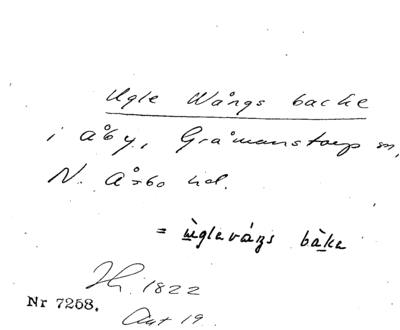 Ugle Wångs backe
i Åby, Gråmanstorp sn,
N. Åsbo hd.
= ùglevá̱ŋs bàke
1822
Nr 7258.
19